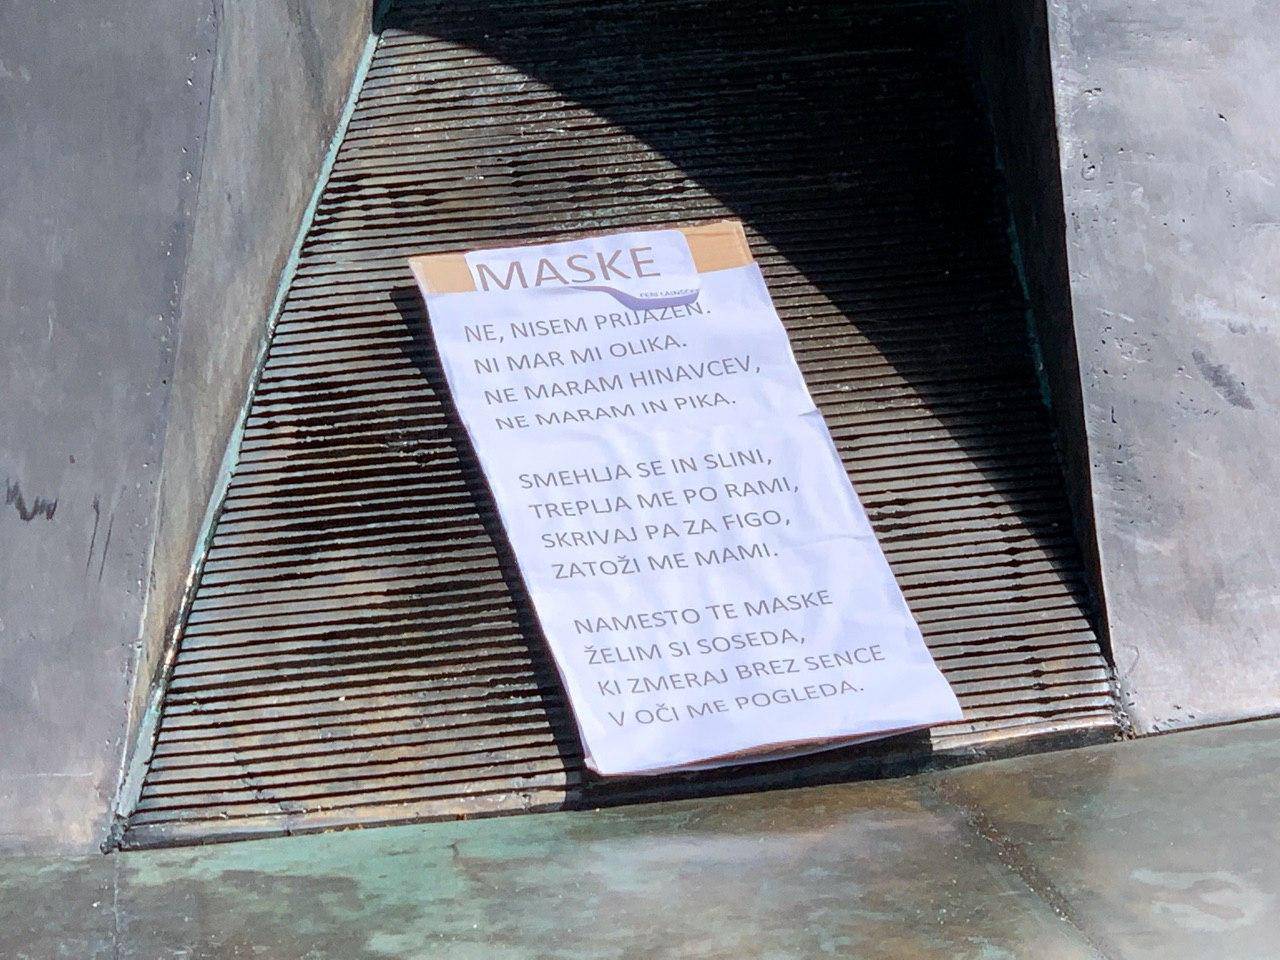 MASKE
FERI LAINŠČEK
NE, NISEM PRIJAZEN.
NI MAR MI OLIKA.
NE MARAM HINAVCEV,
NE MARAM IN PIKA.
SMEHLJA SE IN SLINI,
TREPLJA ME PO RAMI,
SKRIVAJ PA ZA FIGO,
ZATOŽI ME MAMI.
NAMESTO TE MASKE
ŽELIM SI SOSEDA,
KI ZMERAJ BREZ SENCE
V OČI ME POGLEDA.